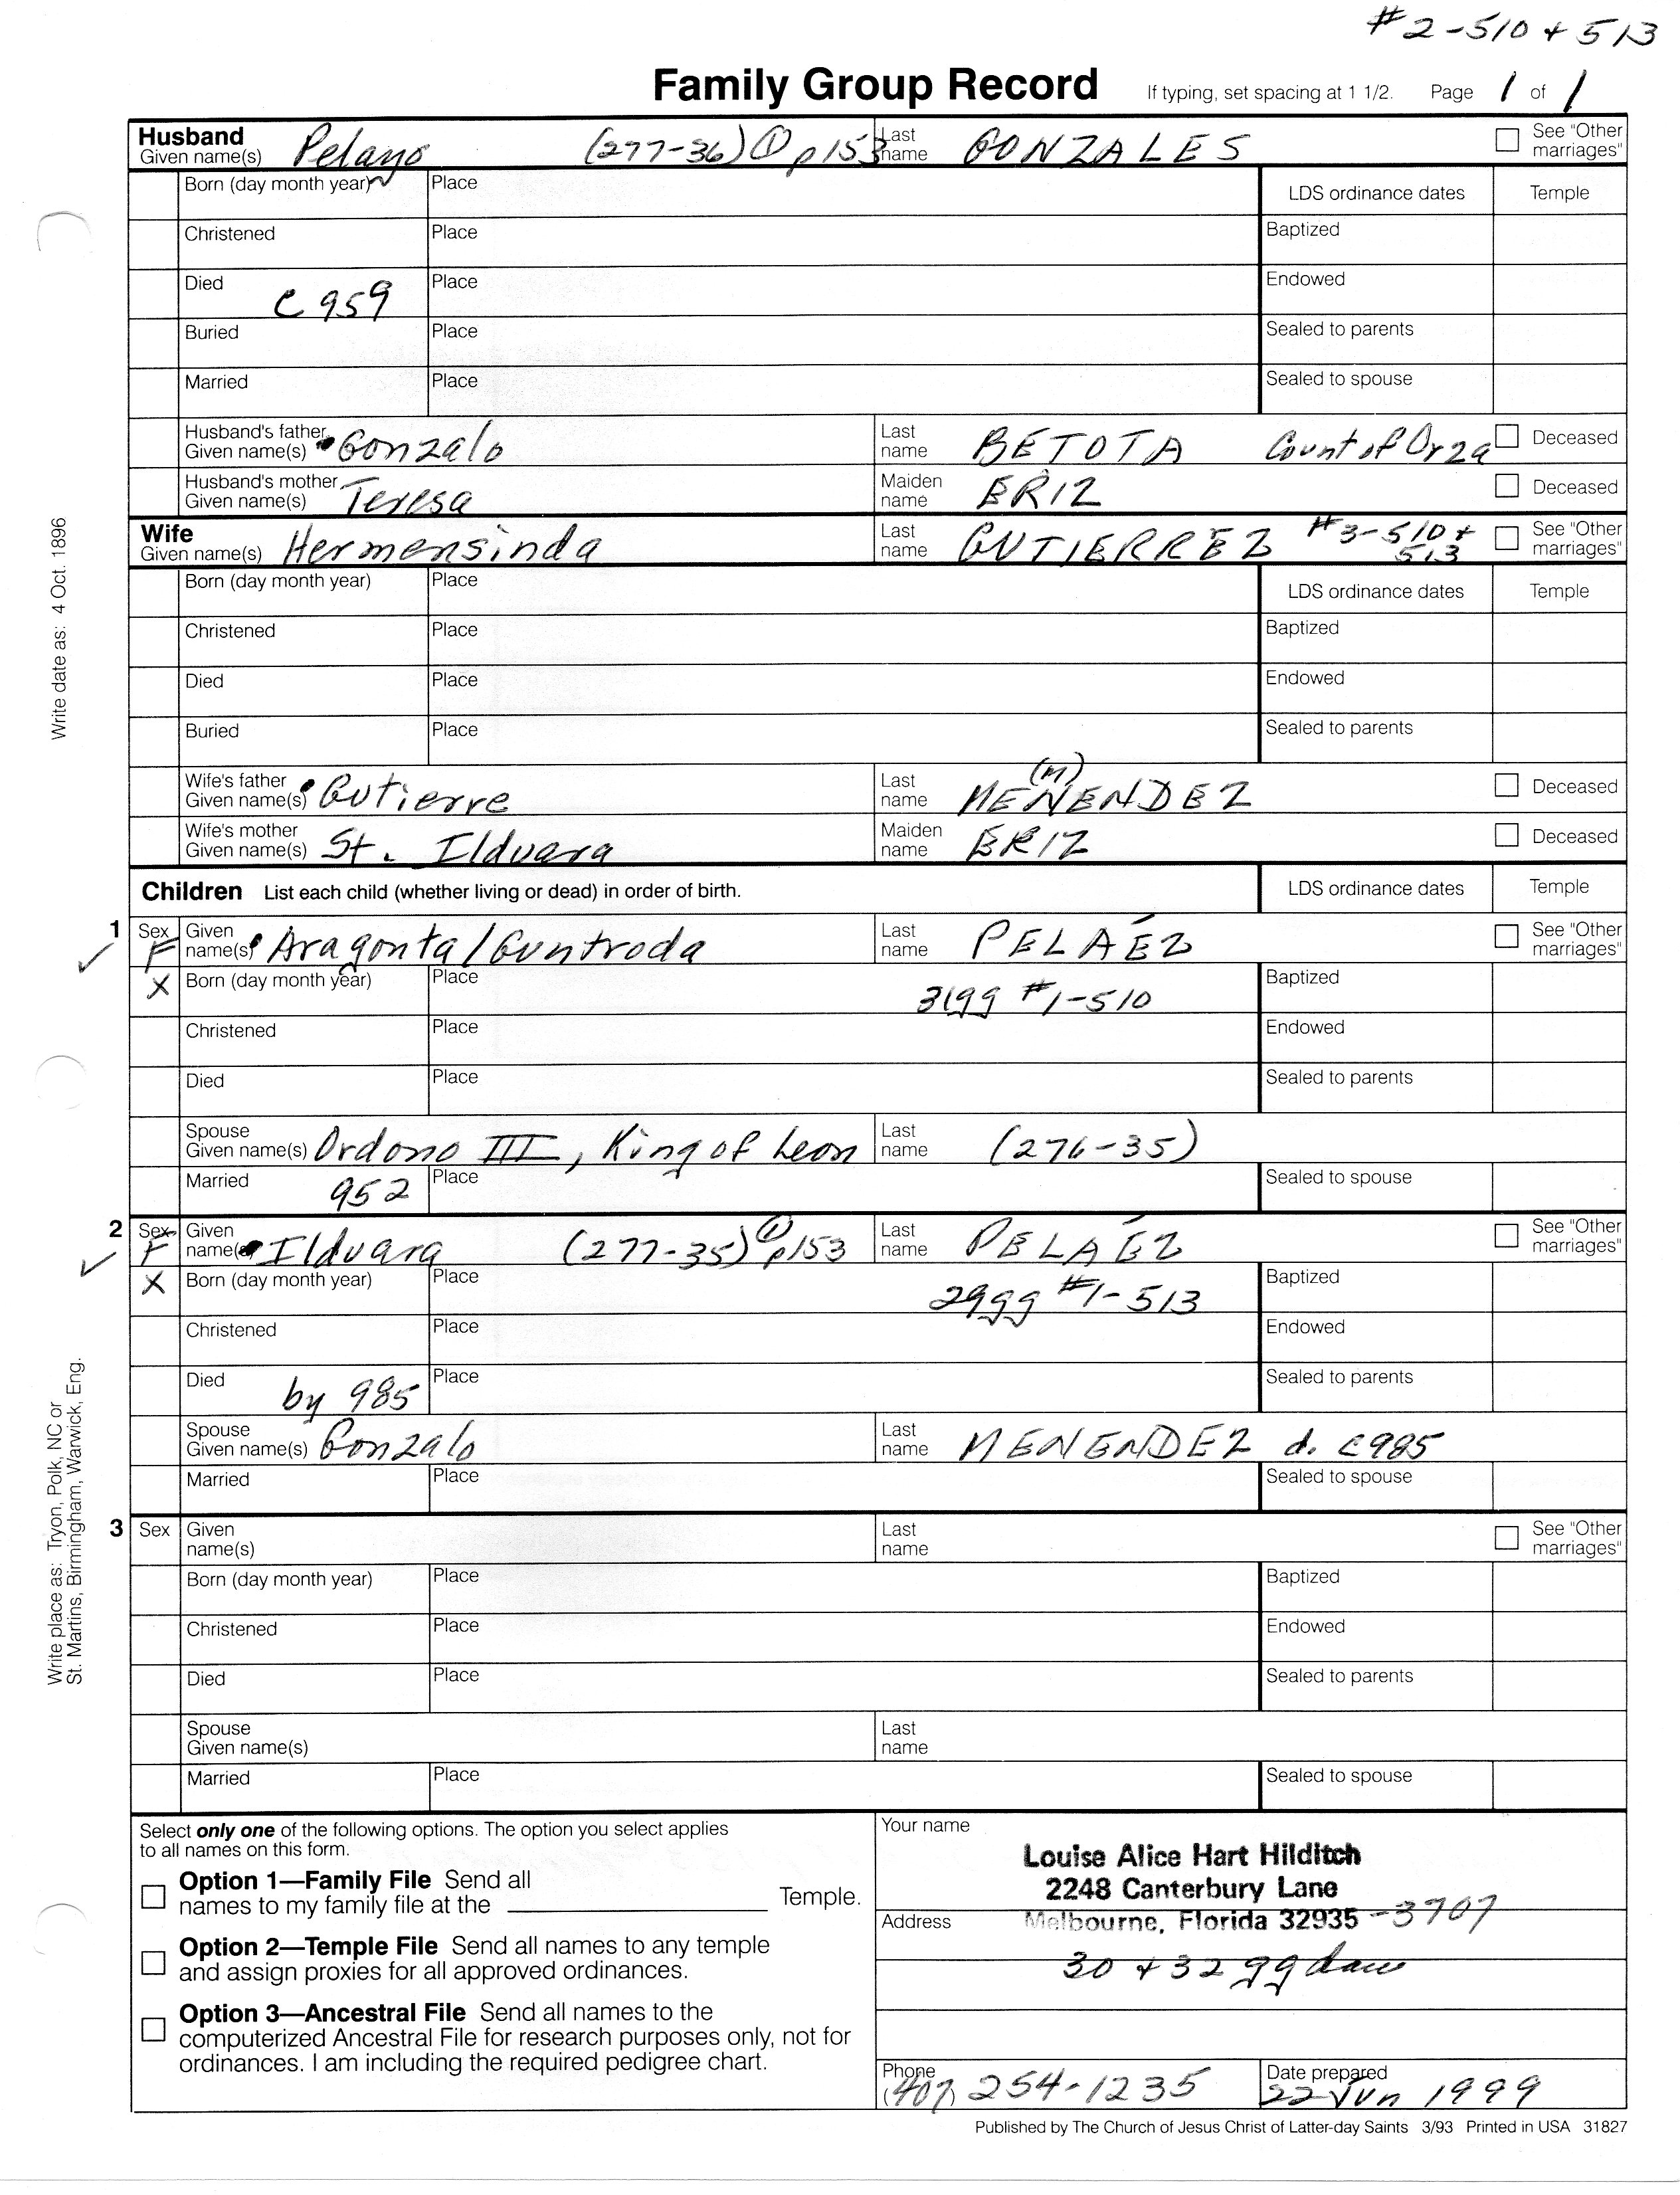 #2-510 + 513
Family Group Record If typing, set spacing at 1 1/2. Page 1 of 1
Husband
Given name(s) Pelayo (277-36) ① p153 Last name GONZALES See "Other marriages"
Born (day month year) Place LDS ordinance dates Temple
Christened Place Baptized
Died C 959 Place Endowed
Buried Place Sealed to parents
Married Place Sealed to spouse
Husband's father Given name(s) Gonzalo Last name BETOTA Count of Orza Deceased
Husband's mother Given name(s) Teresa Maiden name ERIZ Deceased
Wife
Given name(s) Hermensinda Last name GUTIERREZ #3-510+ 513 See "Other marriages"
Born (day month year) Place LDS ordinance dates Temple
Christened Place Baptized
Died Place Endowed
Buried Place Sealed to parents
Wife's father Given name(s) Gutierre Last name MENENDEZ (M) Deceased
Wife's mother Given name(s) St. Ilduara Maiden name ERIZ Deceased
Children List each child (whether living or dead) in order of birth. LDS ordinance dates Temple
1 Sex F Given name(s) Aragonta/Guntroda Last name PELÁEZ See "Other marriages"
X Born (day month year) Place 31gg #1-510 Baptized
Christened Place Endowed
Died Place Sealed to parents
Spouse Given name(s) Ordono III, King of Leon Last name (276-35)
Married 952 Place Sealed to spouse
2 Sex F Given name(s) Ilduara (277-35) ① p153 Last name PELÁEZ See "Other marriages"
X Born (day month year) Place 29gg #1-513 Baptized
Christened Place Endowed
Died by 985 Place Sealed to parents
Spouse Given name(s) Gonzalo Last name MENENDEZ d. c985
Married Place Sealed to spouse
3 Sex Given name(s) Last name See "Other marriages"
Born (day month year) Place Baptized
Christened Place Endowed
Died Place Sealed to parents
Spouse Given name(s) Last name
Married Place Sealed to spouse
Select only one of the following options. The option you select applies
to all names on this form.
Option 1—Family File Send all
names to my family file at the Temple.
Option 2—Temple File Send all names to any temple
and assign proxies for all approved ordinances.
Option 3—Ancestral File Send all names to the
computerized Ancestral File for research purposes only, not for
ordinances. I am including the required pedigree chart.
Your name
Louise Alice Hart Hilditch
2248 Canterbury Lane
Address Melbourne, Florida 32935 -3707
30 + 32 gg dau
Phone (407) 254-1235 Date prepared 22 Jun 1999
Published by The Church of Jesus Christ of Latter-day Saints 3/93 Printed in USA 31827
Write date as: 4 Oct. 1896
Write place as: Tryon, Polk, NC or
St. Martins, Birmingham, Warwick, Eng.